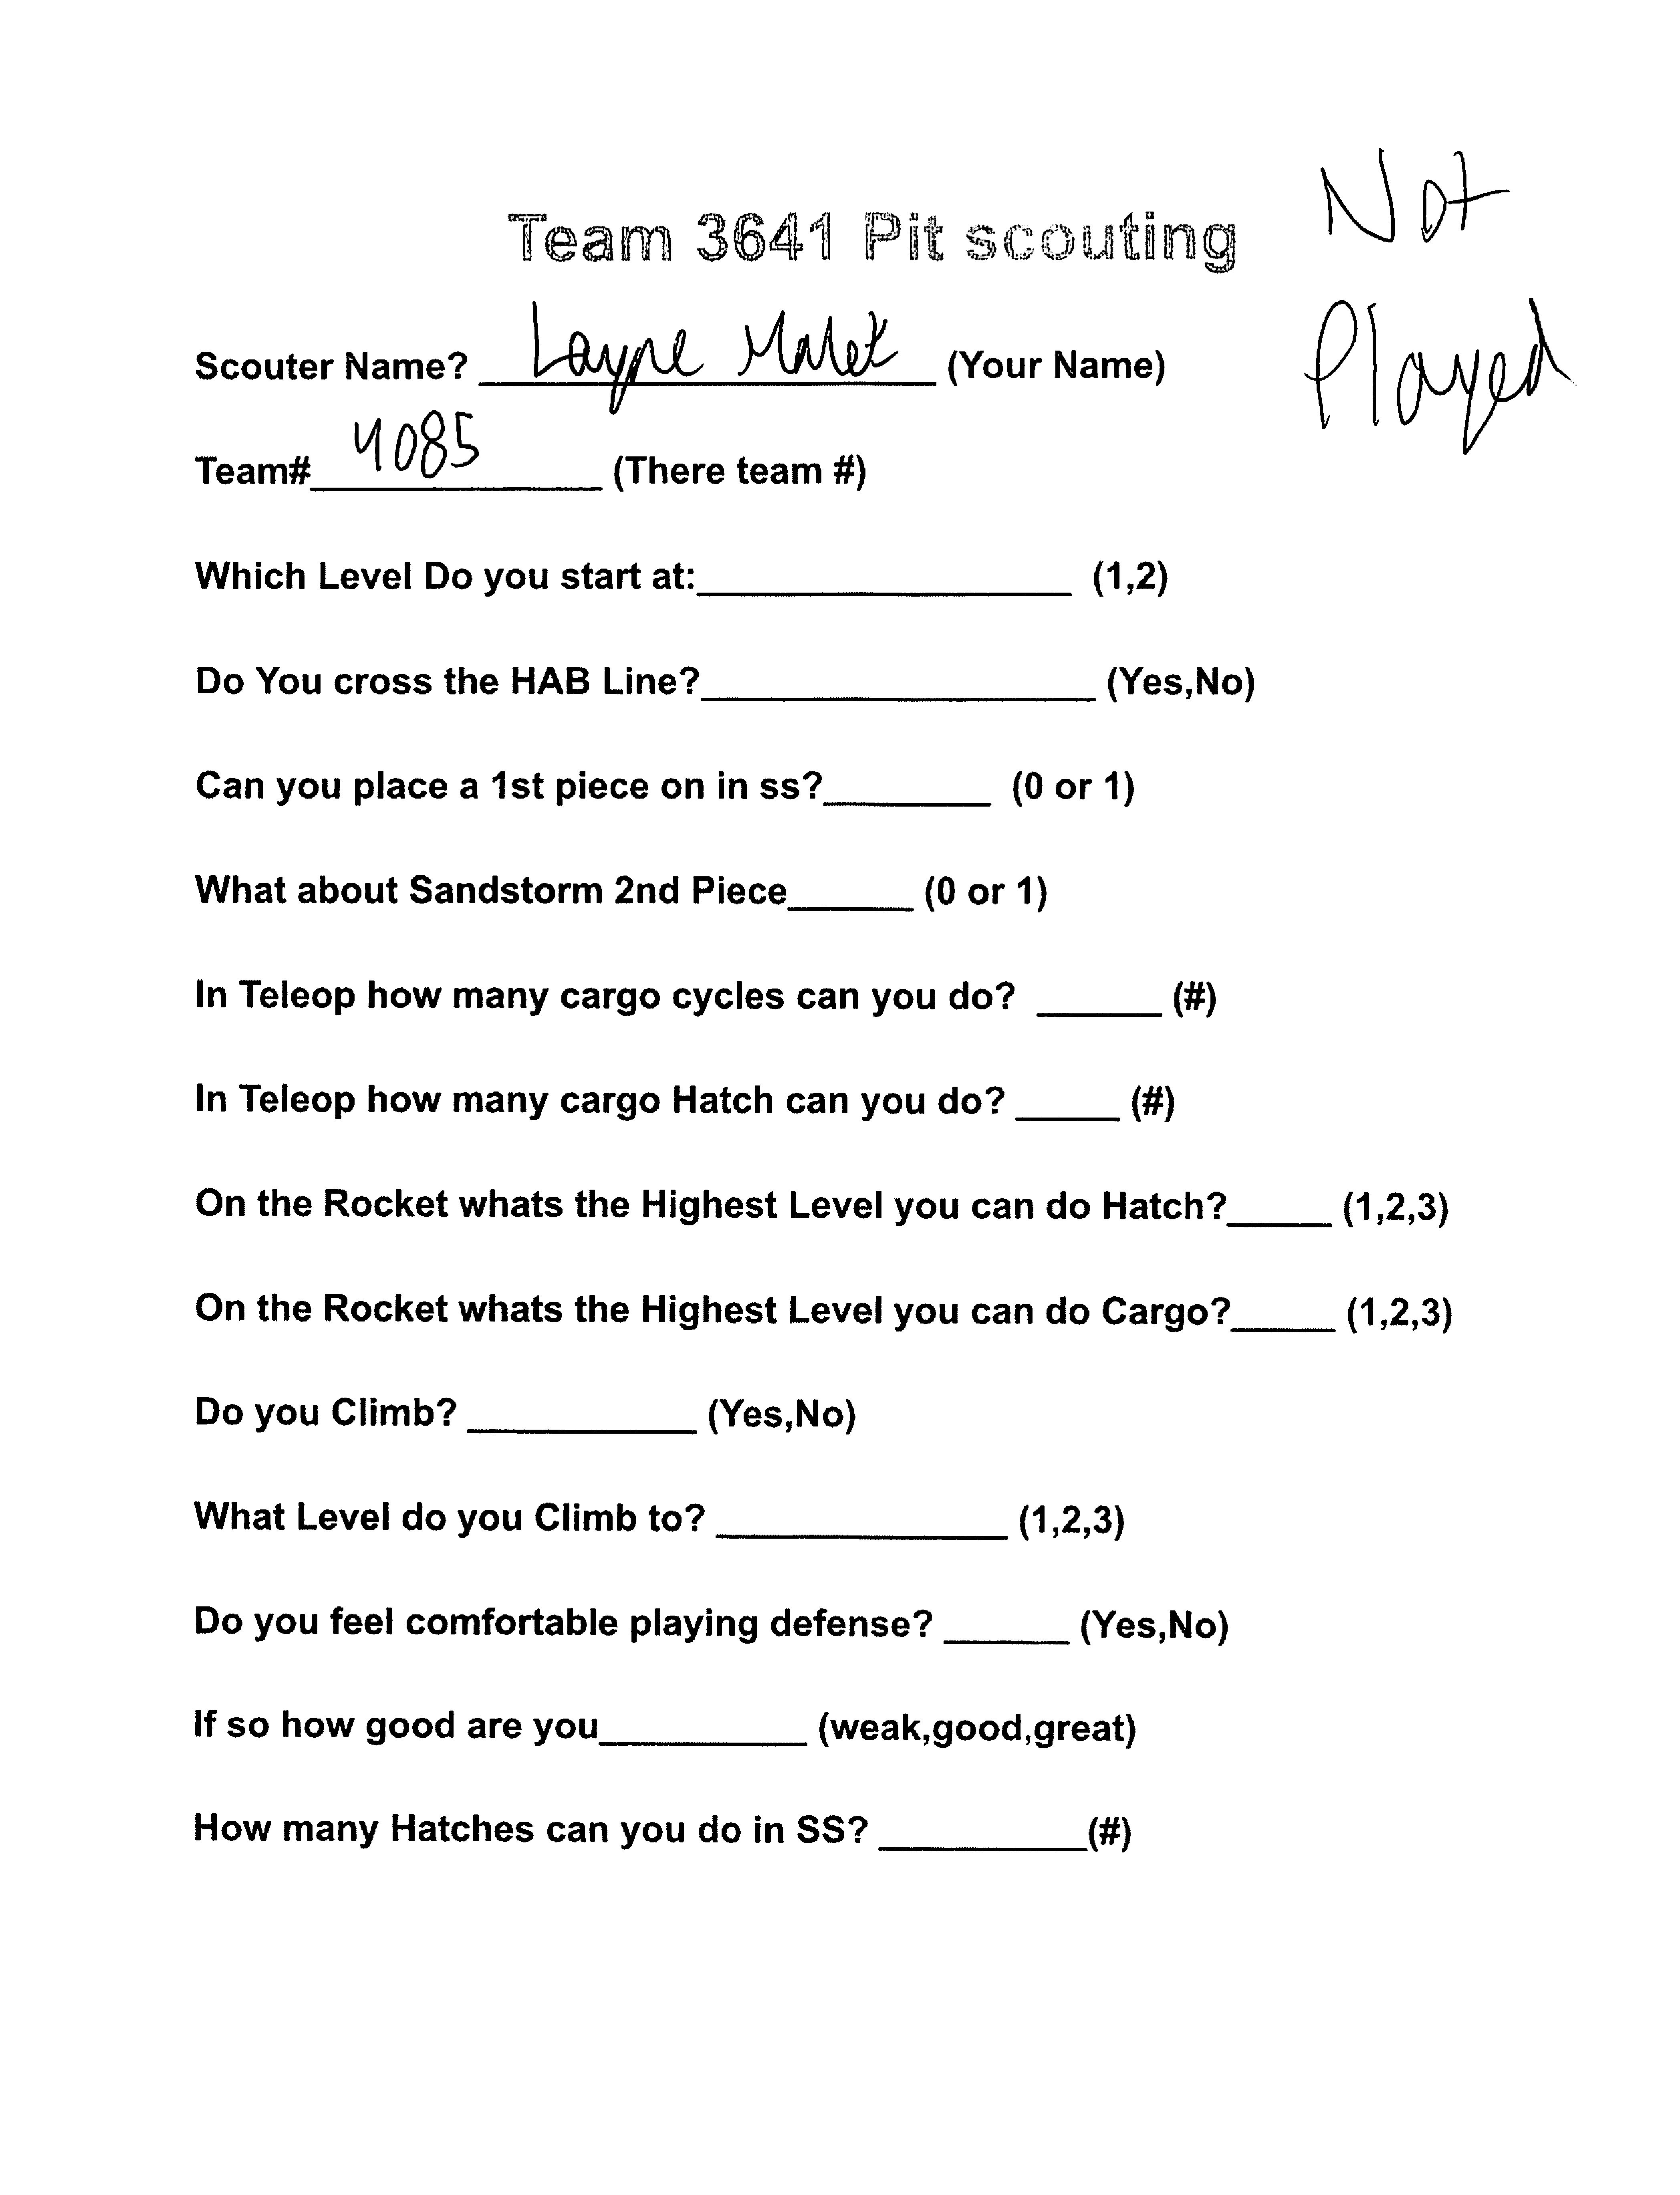 Not
Team 3641 Pit scouting
Played
Scouter Name? Layne (Your Name)
Team# 4085 (There team #)
Which Level Do you start at: (1,2)
Do You cross the HAB Line? (Yes,No)
Can you place a 1st piece on in ss? (0 or 1)
What about Sandstorm 2nd Piece (0 or 1)
In Teleop how many cargo cycles can you do? (#)
In Teleop how many cargo Hatch can you do? (#)
On the Rocket whats the Highest Level you can do Hatch? (1,2,3)
On the Rocket whats the Highest Level you can do Cargo? (1,2,3)
Do you Climb? (Yes,No)
What Level do you Climb to? (1,2,3)
Do you feel comfortable playing defense? (Yes,No)
If so how good are you (weak,good,great)
How many Hatches can you do in SS? (#)